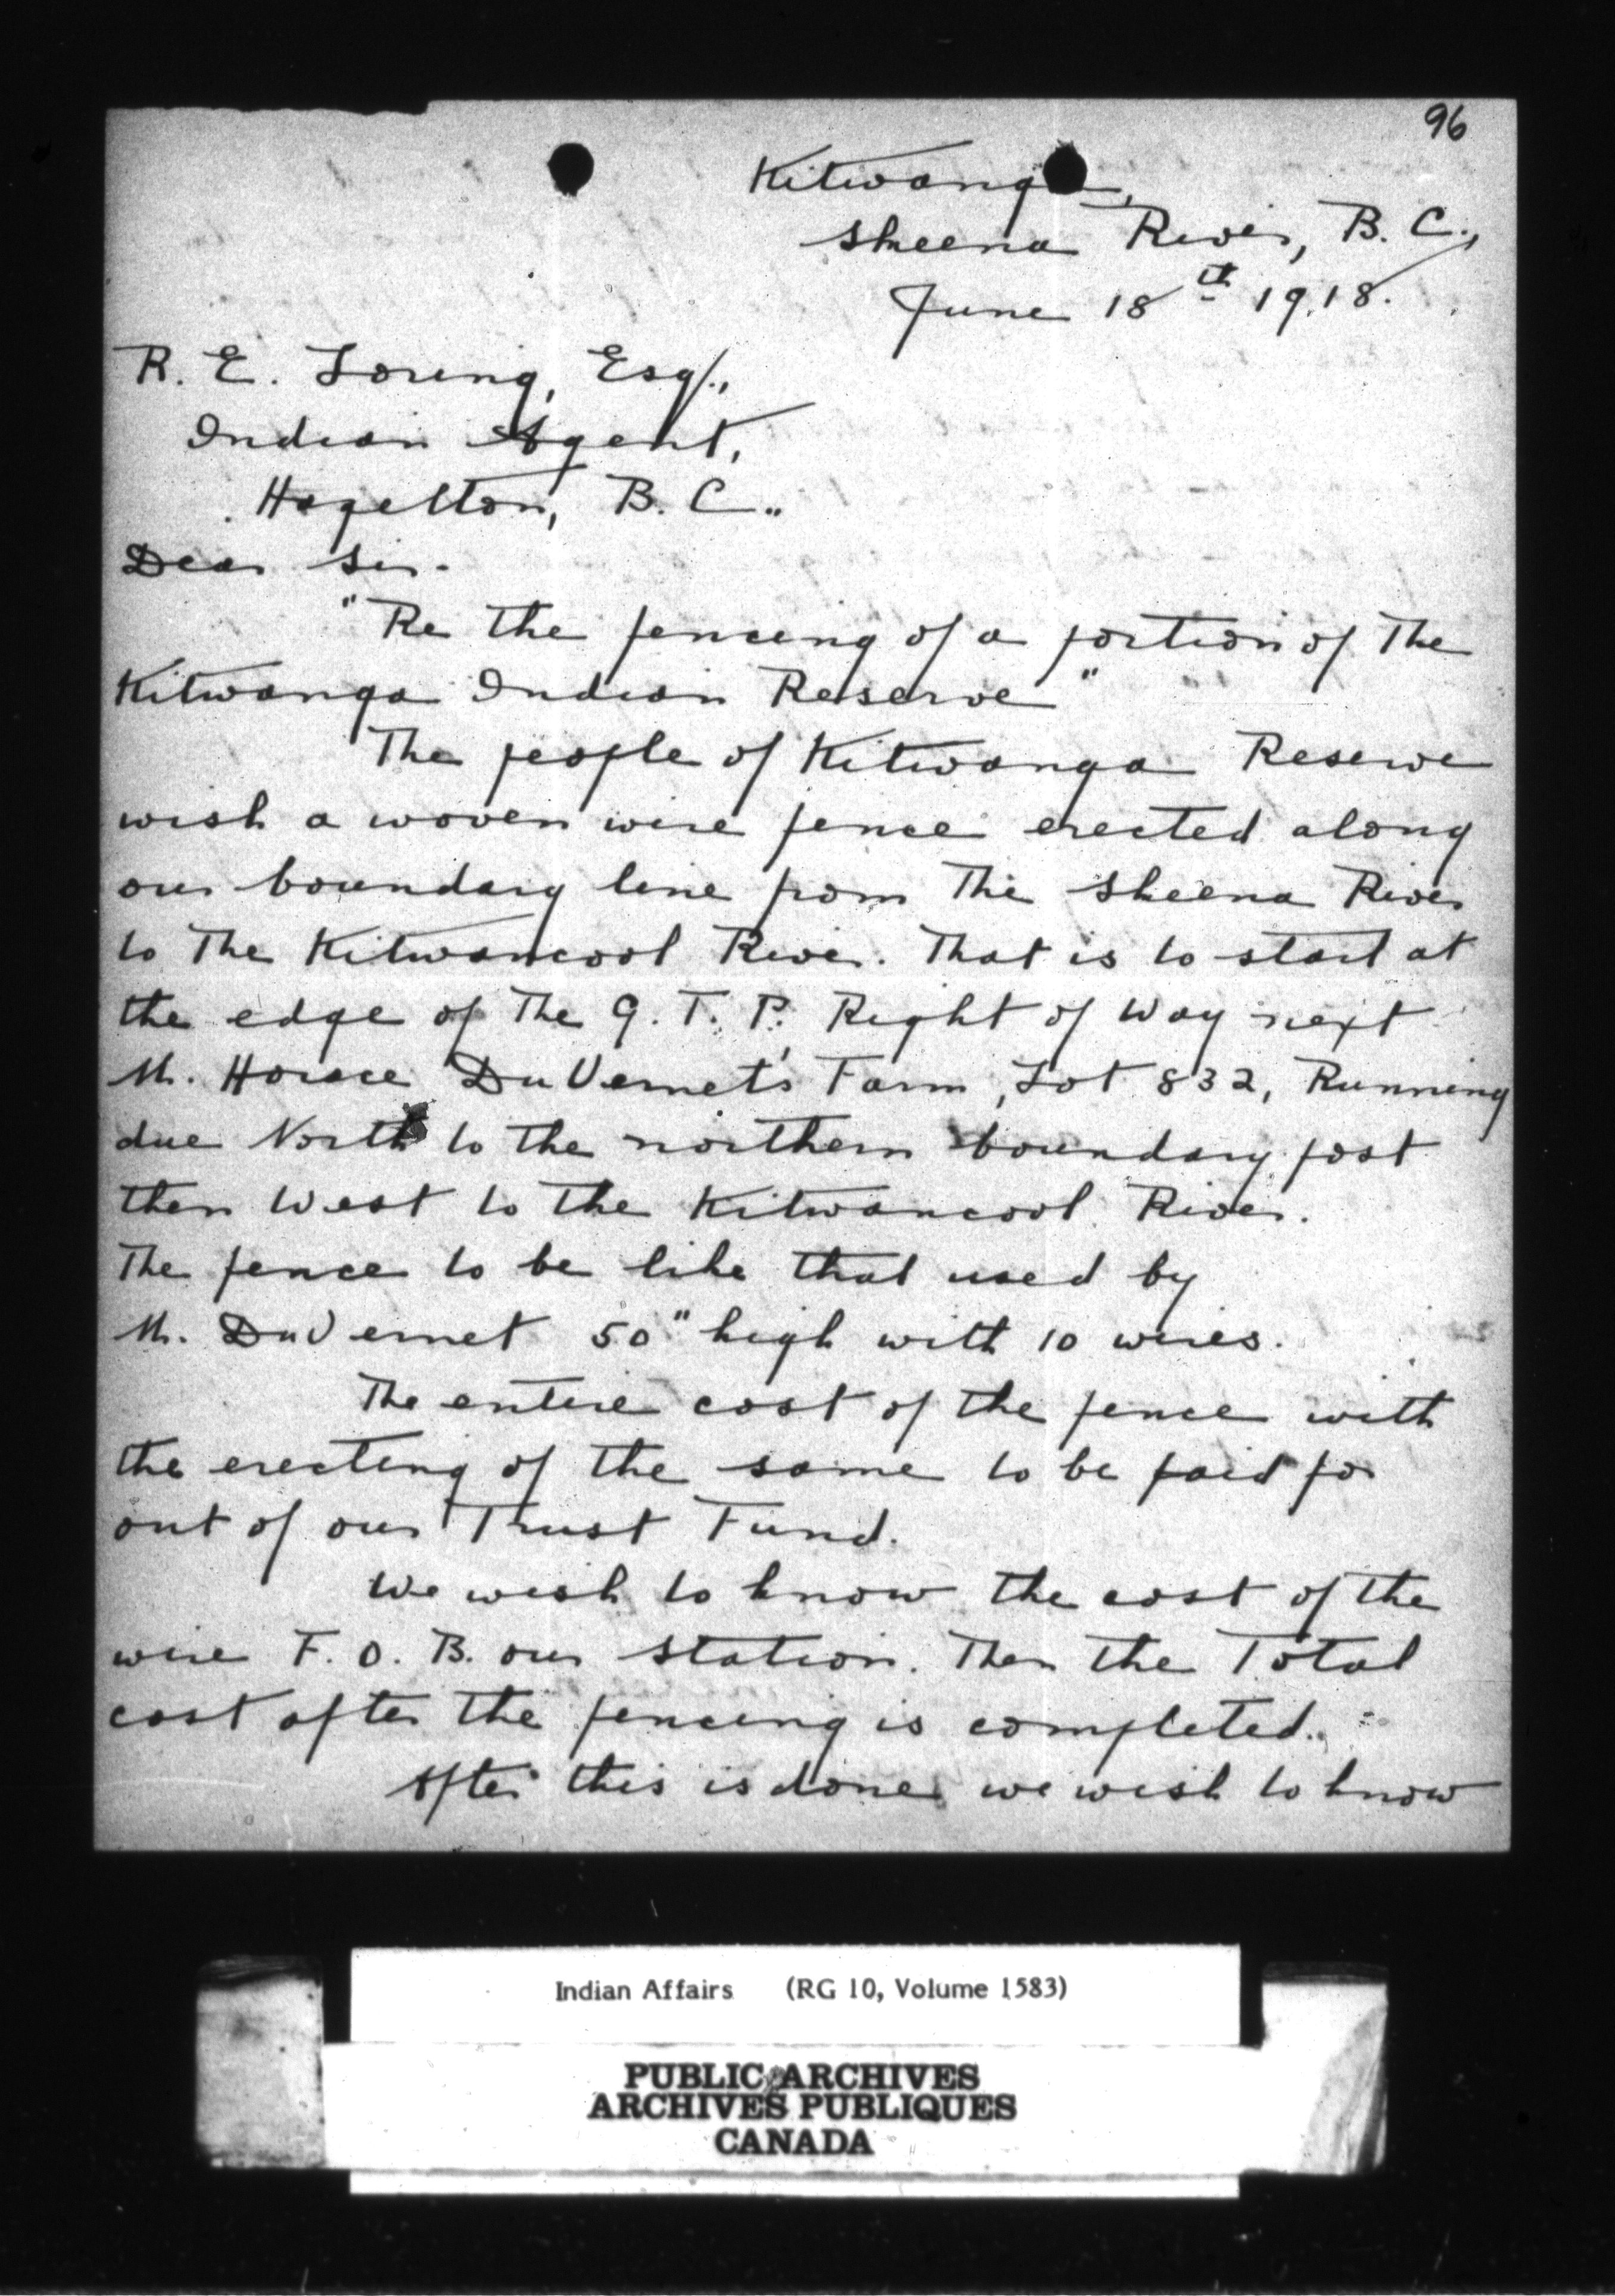 96
Kitwanga,
Skeena River, B. C.,
June 18th 1918.
R. E. Loring, Esq/.,
Indian Agent,
Hazelton, B. C..
Dear Sir.
"Re the fencing of a portion of the
Kitwanga Indian Reserve"
The people of Kitwanga Reserve
wish a woven wire fence erected along
our boundary line from the Skeena River
to the Kitwancool River. That is to start at
the edge of the G. T. P. Right of Way next
Mr. Horace DuVernet's Farm, Lot 832, Running
due North to the northern boundary post
then West to the Kitwancool River.
The fence to be like that used by
Mr. DuVernet 50" high with 10 wires.
The entire cost of the fence with
the erecting of the same to be paid for
out of our Trust Fund.
We wish to know the cost of the
wire F. O. B. our station. Then the Total
cost after the fencing is completed.
After this is done we wish to know
Indian Affairs (RG 10, Volume 1583)
PUBLIC ARCHIVES
ARCHIVES PUBLIQUES
CANADA